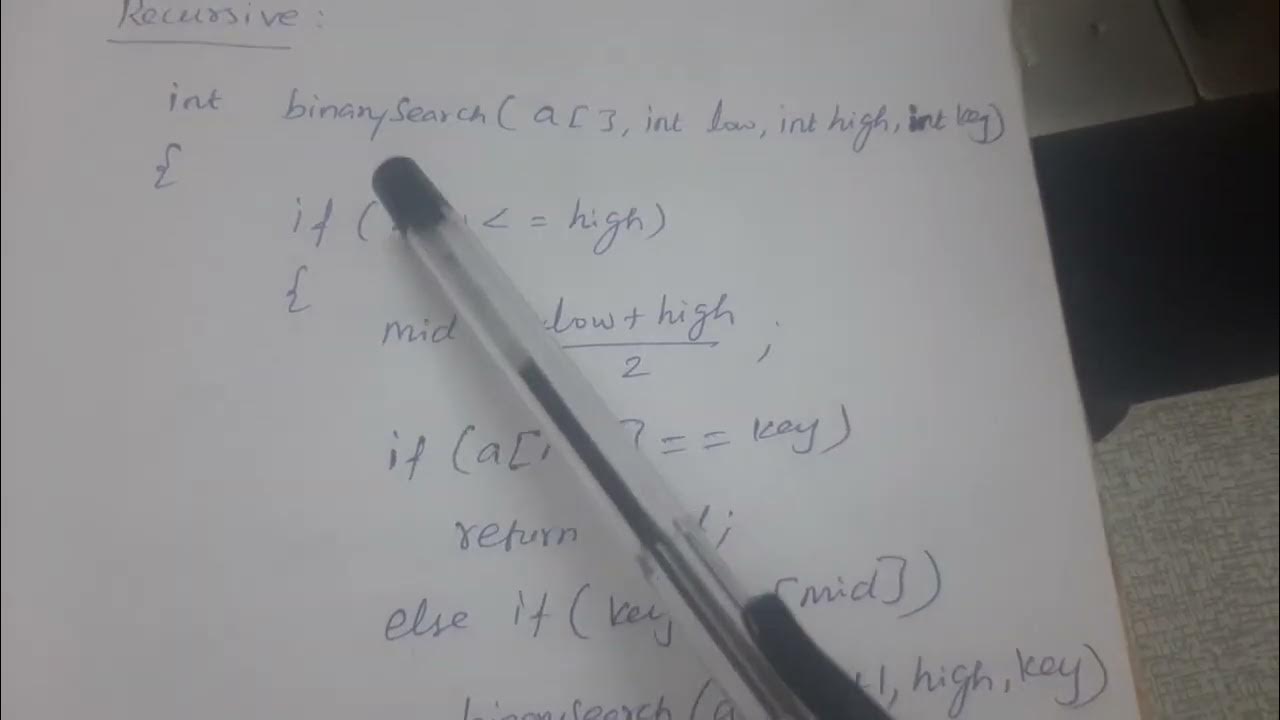 Recursive :
int binarySearch( a[ ], int low, int high, int key)
{
if ( <= high)
{
mid low + high
2 ;
if (a[ ] == key)
return ;
else if ( key [mid])
binarySearch (a +1, high, key)